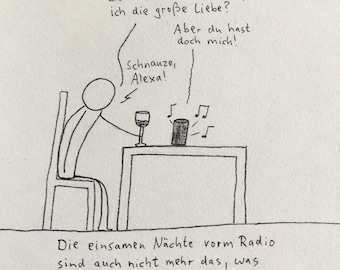 ich die große Liebe?
Aber du hast
doch mich!
Schnauze,
Alexa!
Die einsamen Nächte vorm Radio
sind auch nicht mehr das, was